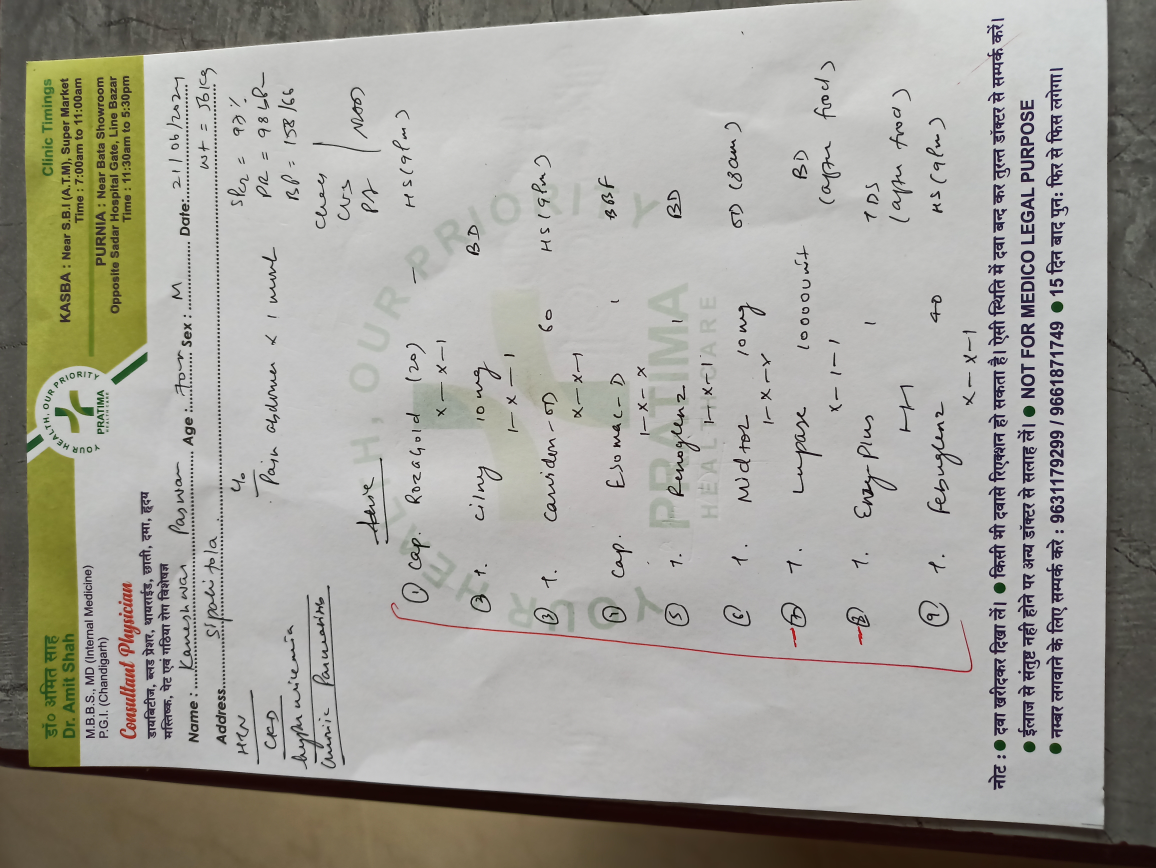 डॉ० अमित साह
Dr. Amit Shah
M.B.B.S., MD (Internal Medicine)
P.G.I. (Chandigarh)
Consultant Physician
डायबिटीज, ब्लड प्रेशर, थायराईड, छाती, दमा, हृदय
मस्तिष्क, पेट एवं गठिया रोग विशेषज्ञ
YOUR HEALTH, OUR PRIORITY
PRATIMA
HEALTH CARE
Clinic Timings
KASBA : Near S.B.I (A.T.M), Super Market
Time : 7:00am to 11:00am
PURNIA : Near Bata Showroom
Opposite Sadar Hospital Gate, Line Bazar
Time : 11:30am to 5:30pm
Name : Kameshwar Paswan Age : 70yr Sex : M Date: 21/06/2024
Address. Sipahitola wt = 58kg
HTN
CKD
hyperuricemia
chronic Pancreatitis
c/o
Pain abdomen x 1 month
SPO2 = 97%
PR = 98
BP = 158/66
Chest
CVS
P/A
NAD
Advice
① Cap. Rozagold (20) – HS (9Pm)
x – x – 1
② T. Cilny 10mg BD
1 – x – 1
③ T. Carvidon-OD 60 HS (9Pm)
x – x – 1
④ Cap. Esomac-D 1 BBF
1 – x – x
⑤ T. Renoglenz 1 BD
1 – x – 1
⑥ T. Midtor 10mg OD (8am)
1 – x – x
⑦ T. Lupase 10000unit BD
x – 1 – 1 (after food)
⑧ T. Enzy-Plus 1 TDS
1–1–1 (after food)
⑨ T. Febuglenz 40 HS (9Pm)
x – x – 1
YOUR HEALTH, OUR PRIORITY
PRATIMA
HEALTH CARE
नोट : ● दवा खरीदकर दिखा लें। ● किसी भी दवासे रिएक्शन हो सकता है। ऐसी स्थिति में दवा बन्द कर तुरन्त डॉक्टर से सम्पर्क करें।
● ईलाज से संतुष्ट नही होने पर अन्य डॉक्टर से सलाह लें। ● NOT FOR MEDICO LEGAL PURPOSE
● नम्बर लगवाने के लिए सम्पर्क करे : 9631179299 / 9661871749 ● 15 दिन बाद पुन: फिर से फिस लगेगा।